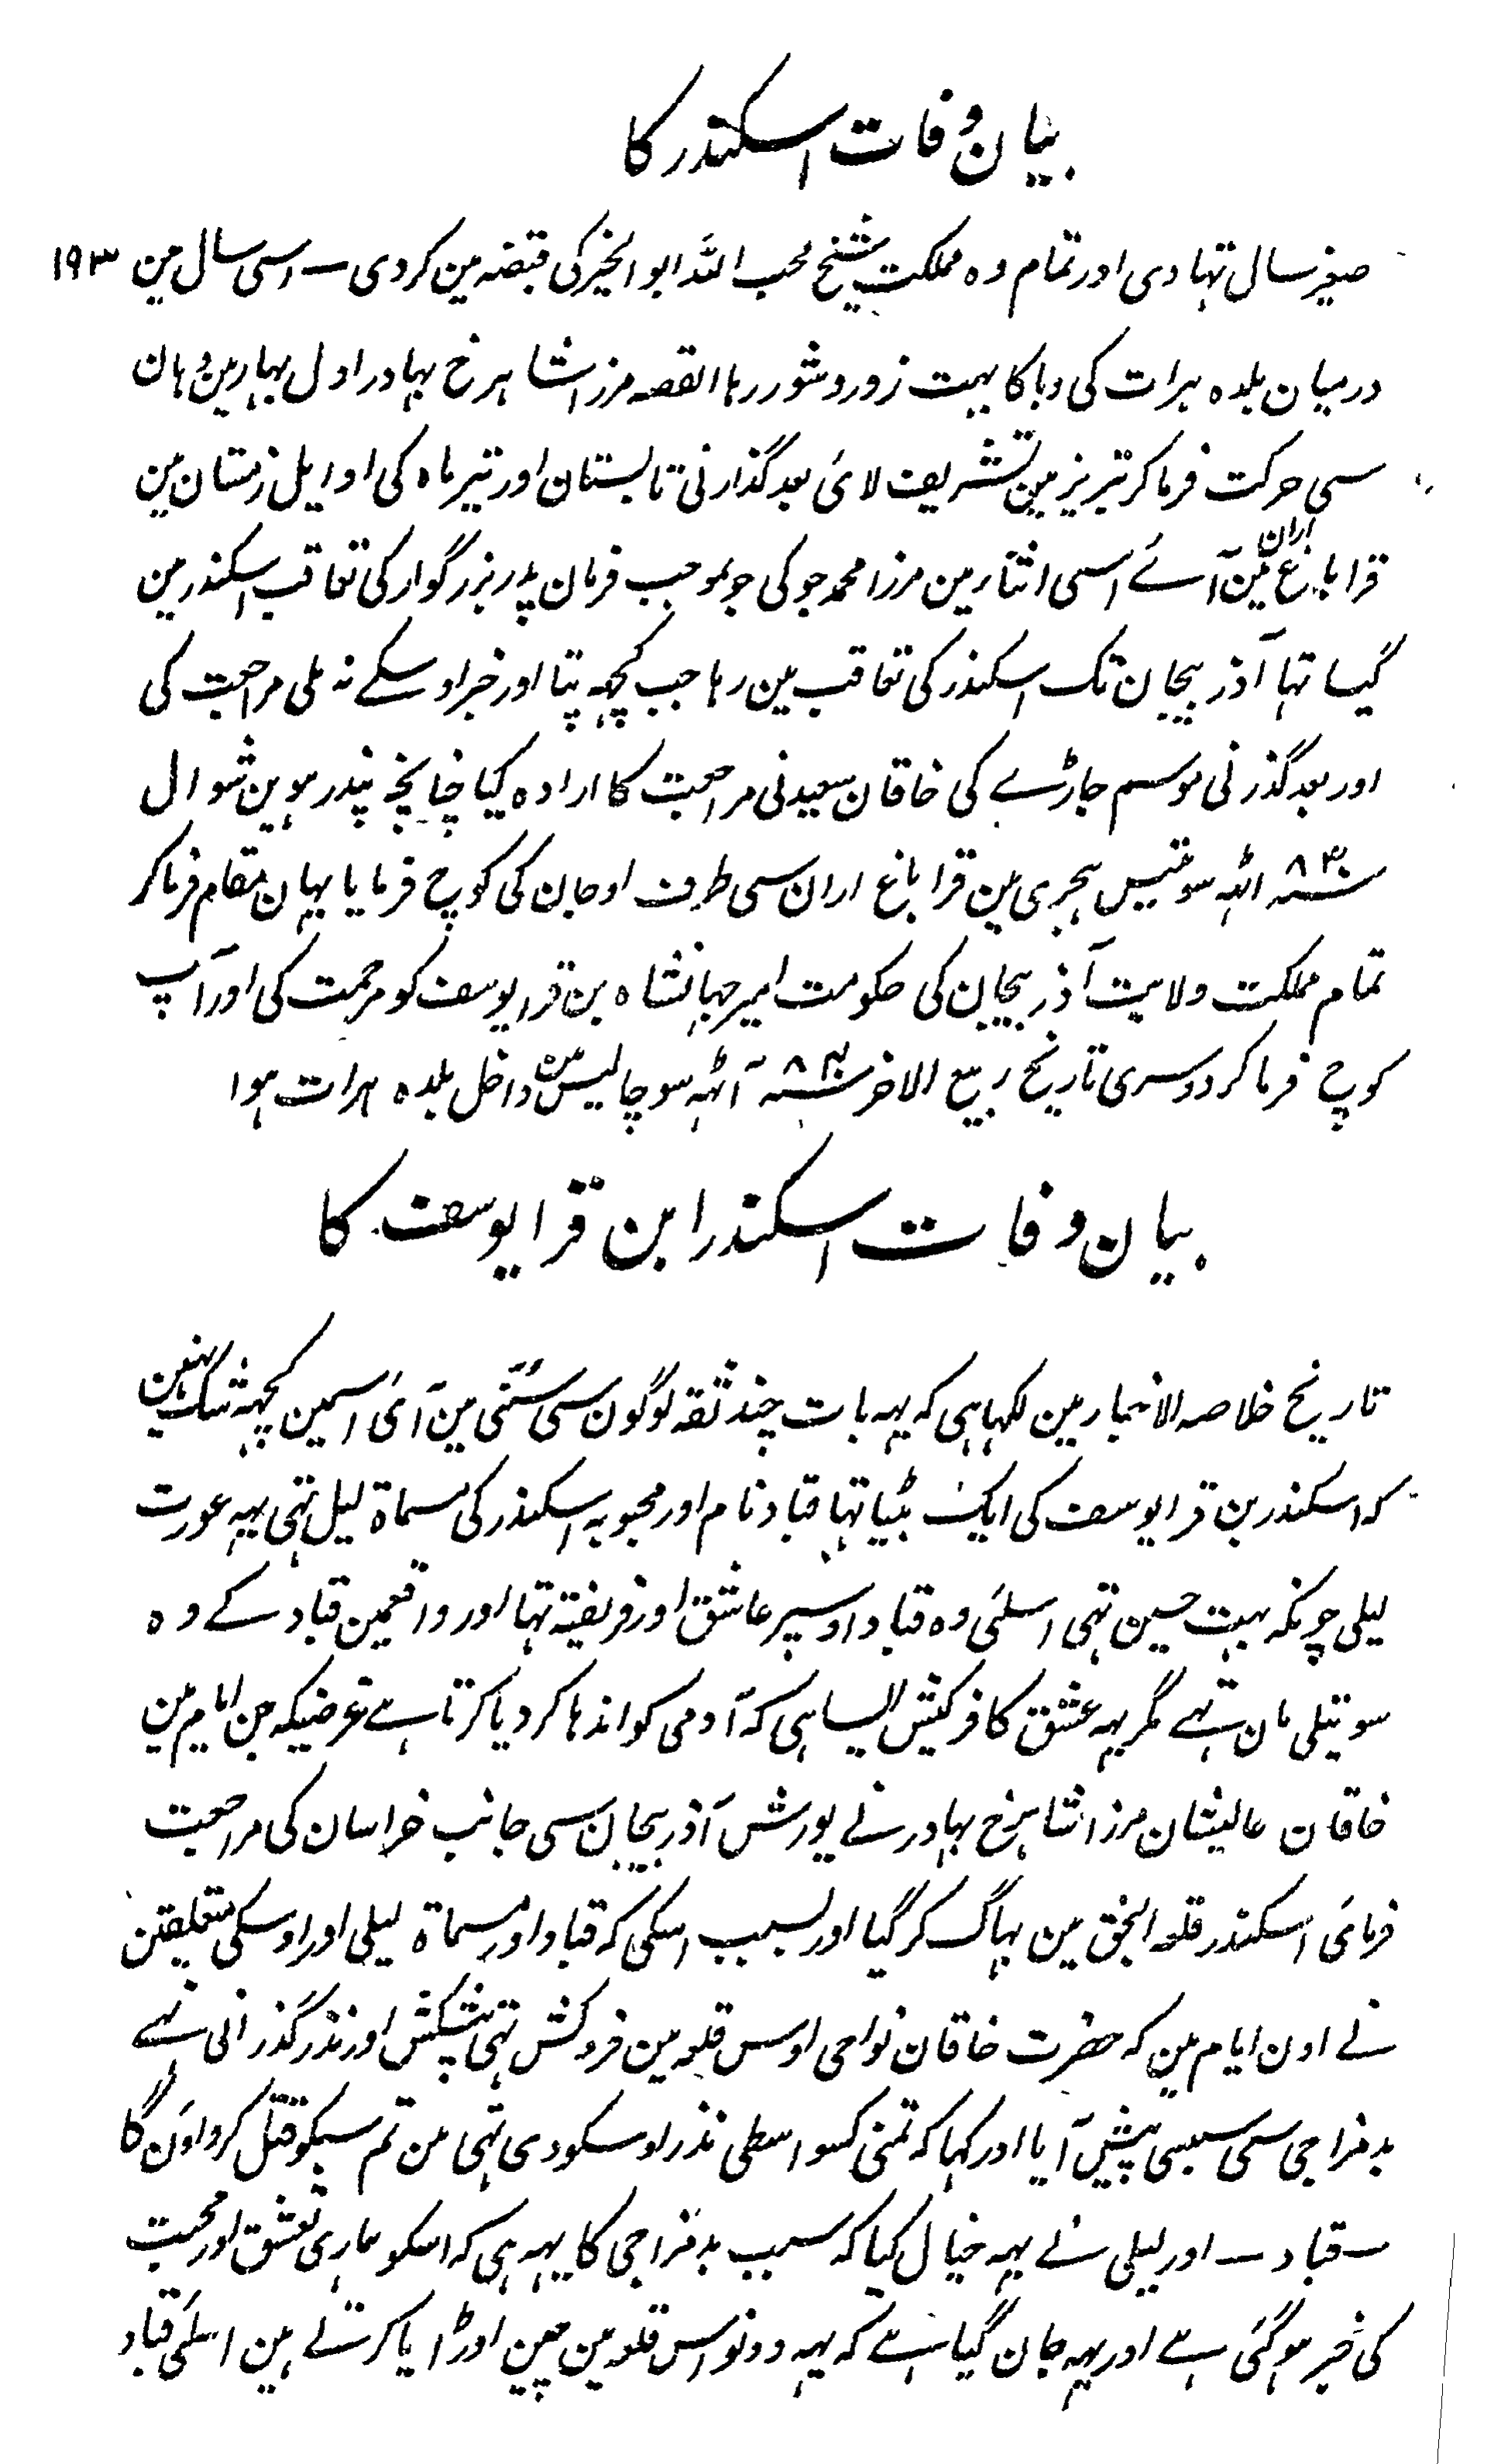 بیان وفات اسکندر کا
۱۹۳
صغیر سال تہا دی اور تمام وہ مملکت شیخ محب اللہ ابو الخیر کی قبضہ مین کردی ـ اسی سال مین
درمیان بلدہ ہرات کی وبا کا بہت زور و شور رہا القصہ مرزا شاہرخ بہادر اول بہار مین وہان
سی حرکت فرما کر تبریز مین تشریف لائی بعد گذارنی تابستان اور تیر ماہ کی اوایل زمستان مین
قراباغ اران مین آئے اسی اثنا رمین مرزا محمد جوکی جو بموجب فرمان پدر بزرگوار کی تعاقب اسکندر مین
گیا تہا آذربیجان تک اسکندر کی تعاقب مین رہا جب کچہہ پتا اور خبر اوسکے نہ ملی مراجعت کی
اور بعد گذرنی موسم جاڑے کی خاقان سعید نی مراجعت کا ارادہ کیا چنانچہ پندرہوین شوال
سنہ ۸۳ اٹہہ سو تیس ہجری مین قراباغ اران سی طرف اوجان کی کوچ فرمایا یہان مقام فرماکر
تمام مملکت ولایت آذربیجان کی حکومت امیر جہانشاہ بن قرا یوسف کو مرحمت کی اور آپ
کوچ فرما کر دوسری تاریخ ربیع الاخر سنہ ۸۴ آٹہہ سو چالیس مین داخل بلدہ ہرات ہوا
بیان وفات اسکندر ابن قرا یوسف کا
تاریخ خلاصہ الاخبار مین لکہا ہی کہ یہہ بات چند ثقہ لوگون سی سننی مین آئی اسمین کچہہ شک نہین
کہ اسکندر بن قرا یوسف کی ایک بٹیا تہا قباد نام اور محبوبہ اسکندر کی مسماۃ لیل تہی یہہ عورت
لیلی چونکہ بہت حسین تہی اسلئی وہ قباد اوسپر عاشق اور فریفتہ تہا اور واقعمین قباد کے وہ
سوتیلی مان تہے مگر یہہ عشق کافرکیش ایسا ہی کہ آدمی کو اندہا کر دیا کرتا ہے غرضیکہ جن ایام مین
خاقان عالیشان مرزا شاہرخ بہادر نے یورش آذربیجان سی جانب خراسان کی مراجعت
فرمائی اسکندر قلعہ النجق مین بہاگ کر گیا اور بسبب اسکی کہ قباد اور مسماۃ لیلی اور اوسکی متعلیقین
نے اون ایام مین کہ حضرت خاقان نواحی اوس قلعہ مین فروکش تہی پیشکش اور نذر گذرانی تہے
بدمزاجی سی سبسی پیش آیا اور کہا کہ تمنی کسواسطی نذر اوسکو دی تہی من تم سبکو قتل کرواؤن گا
ـ قباد ـ اور لیلی نے یہہ خیال کیا کہ سبب بدمزاجی کا یہہ ہی کہ اسکو ہماری تعشق اور محبت
کی خبر ہو گئی ہے اور یہہ جان گیا ہے کہ یہہ دونو اس قلعہ مین چین اوڑایا کرتے ہین اسلئی قباد